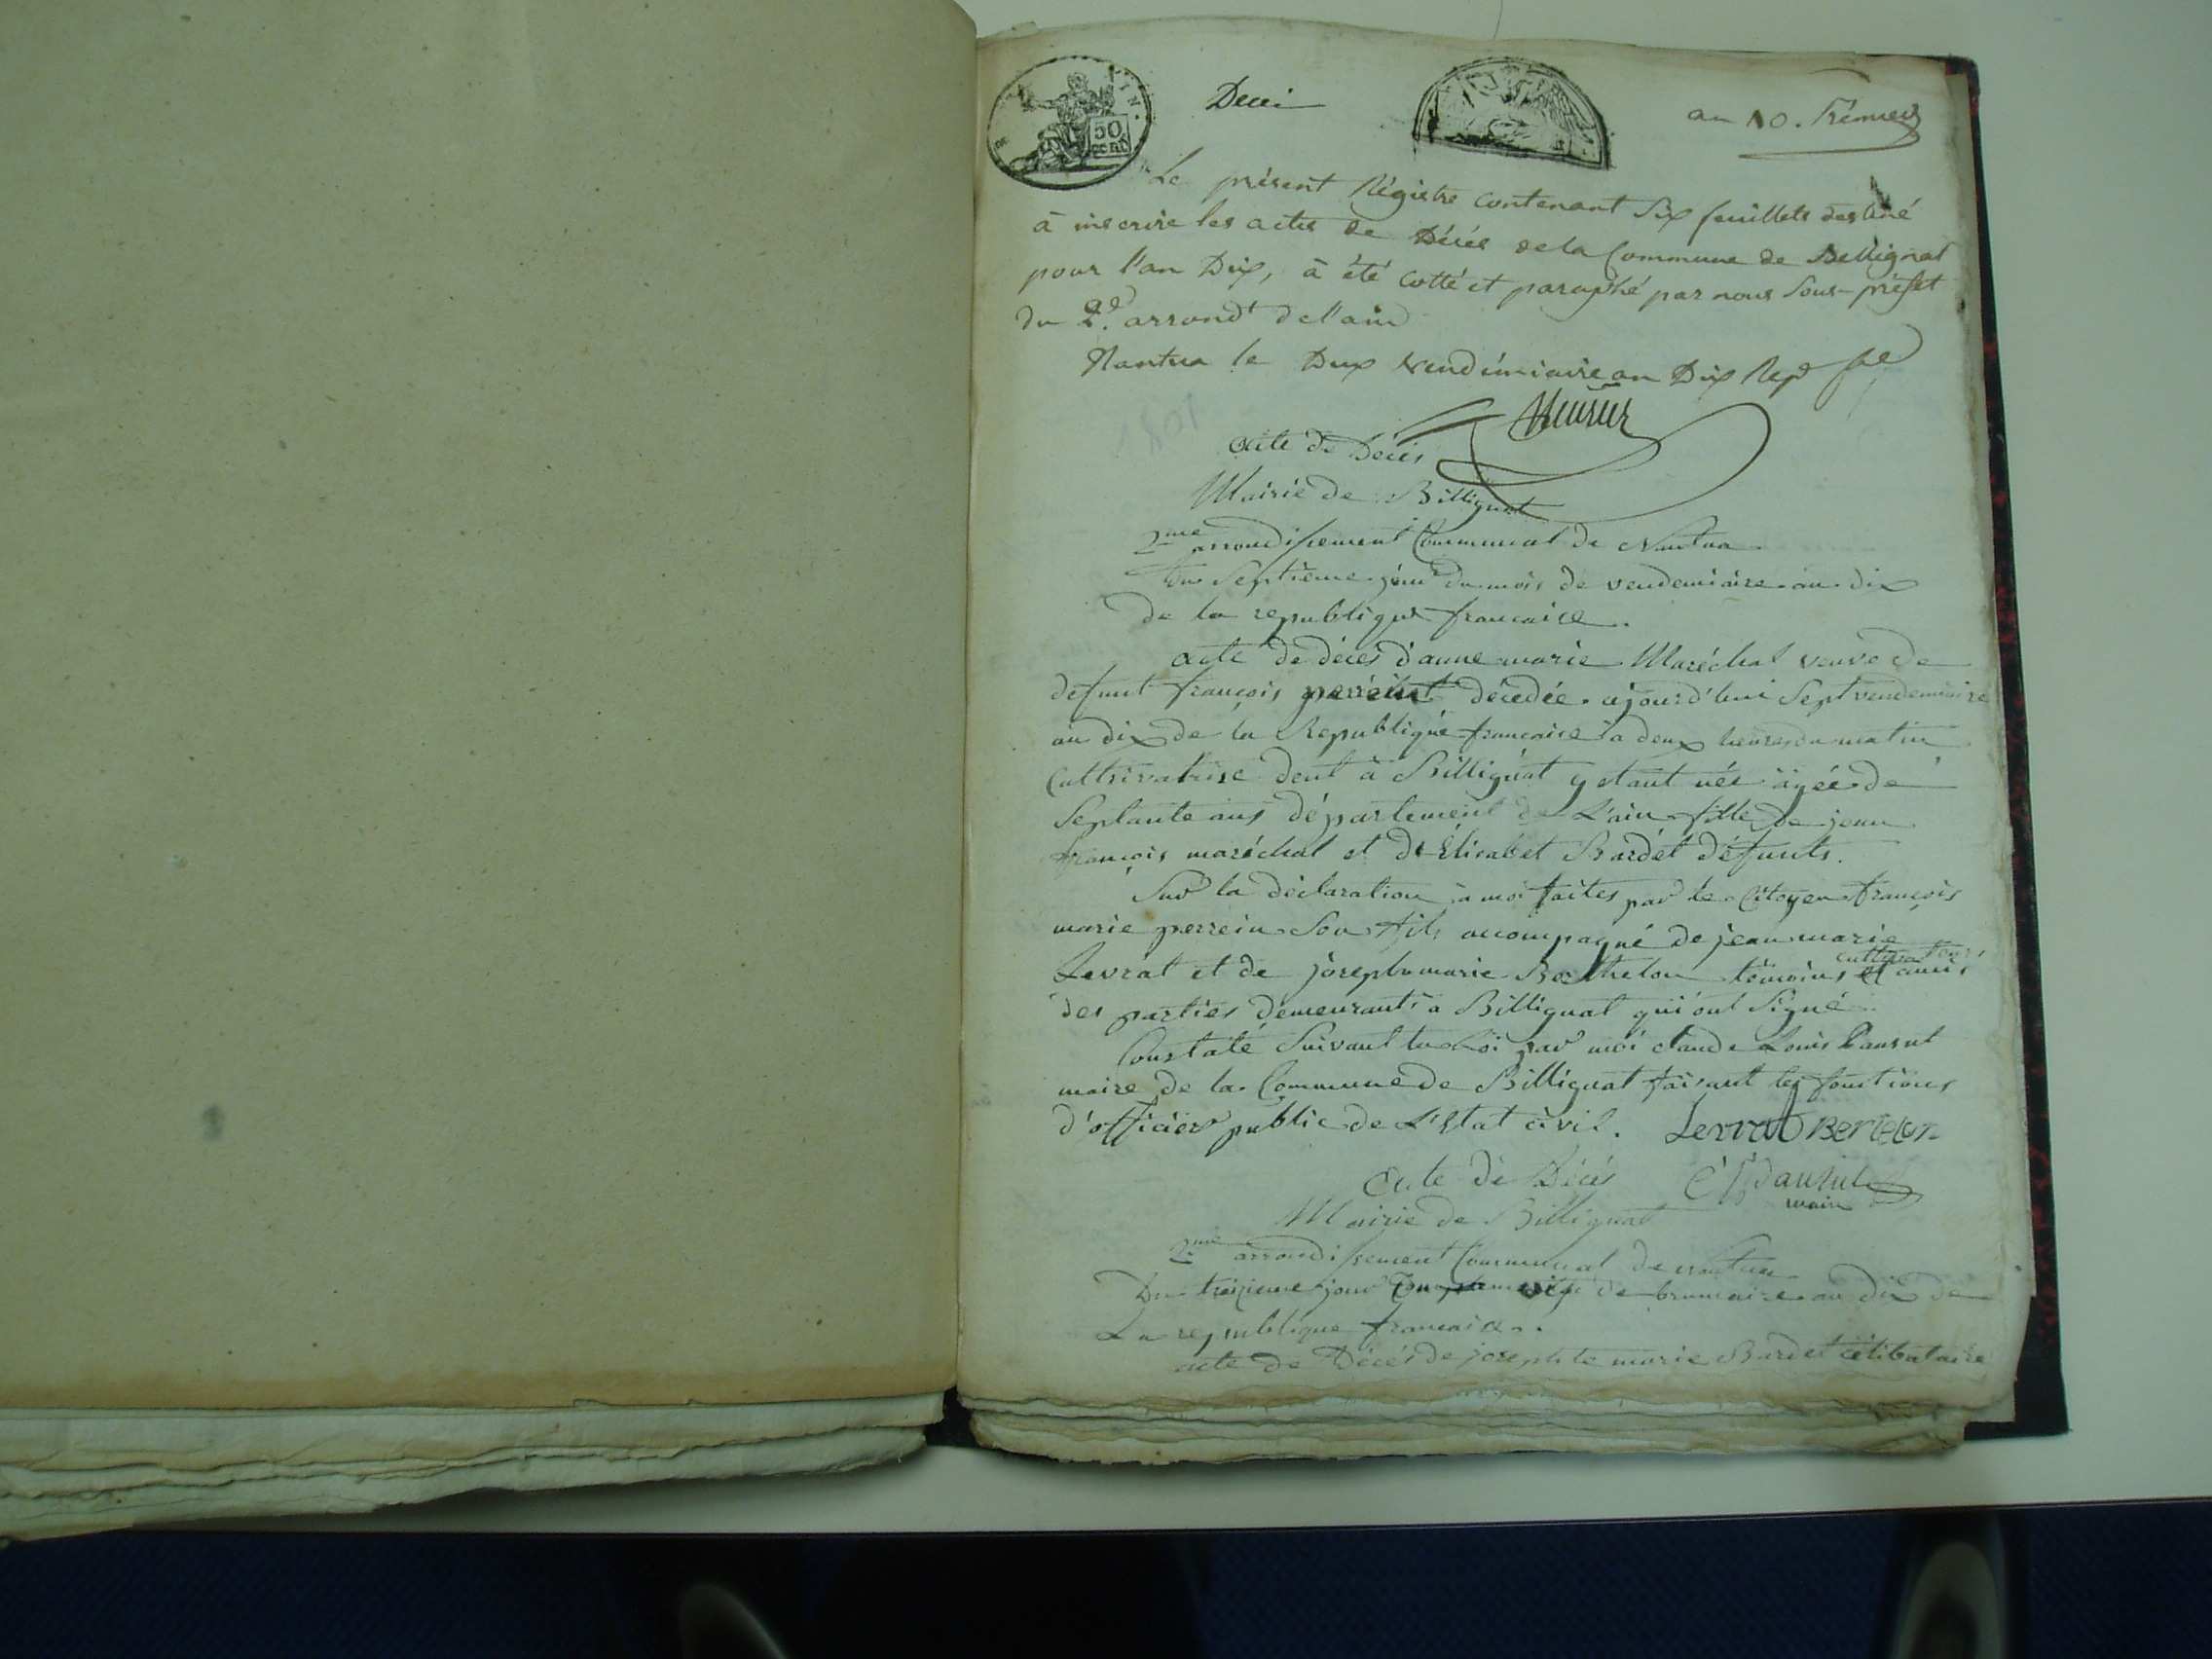 Décès
an 10. Prémier
50
cent
Le présent Régistre contenant Six feuillets destiné
à inscrire les actes de Décés de la Commune de Bellignat
pour l'an Dix, à été cotté et paraphé par nous Sous-préfet
du 2.d arrondt de l'ain
Nantua le Deux Vendémiaire an Dix Rep
acte de Décès
Mairie de Billignat
2me arrondissement Communal de Nantua
Du Septième jour du mois de vendemiaire an dix
de la republique francaise.
acte de décès d'anne marie Maréchal veuve de
défunt françois décedée ajourd'hui Sept vendemiaire
an dix de la Republique francaise à deux heures du matin
Cultrivatrise demt à Billignat y etant née agée de
Septante ans département de L'ain fille de jean
françois maréchal et d'Elisabet Bardet défunts.
Sur la déclaration à moi faites par le Citoyen françois
marie perrein Son fils accompagné de jean marie
Levrat et de joseph marie Berthelon témoins cultivateurs et amis
des parties demeurants a Billignat qui ont Signé
Constaté Suivant la Loi par moi claude Louis
maire de la Commune de Billignat faisant les fonctions
d'officier public de L'Etat civil. Levrat Bertelon
maire
acte de Décès
Mairie de Billignat
2me arrondissement Communal de nantua
Du treizieme jour de brumaire an dix de
La republique francaise.
acte de Décés de josephte marie Bardet célibataire